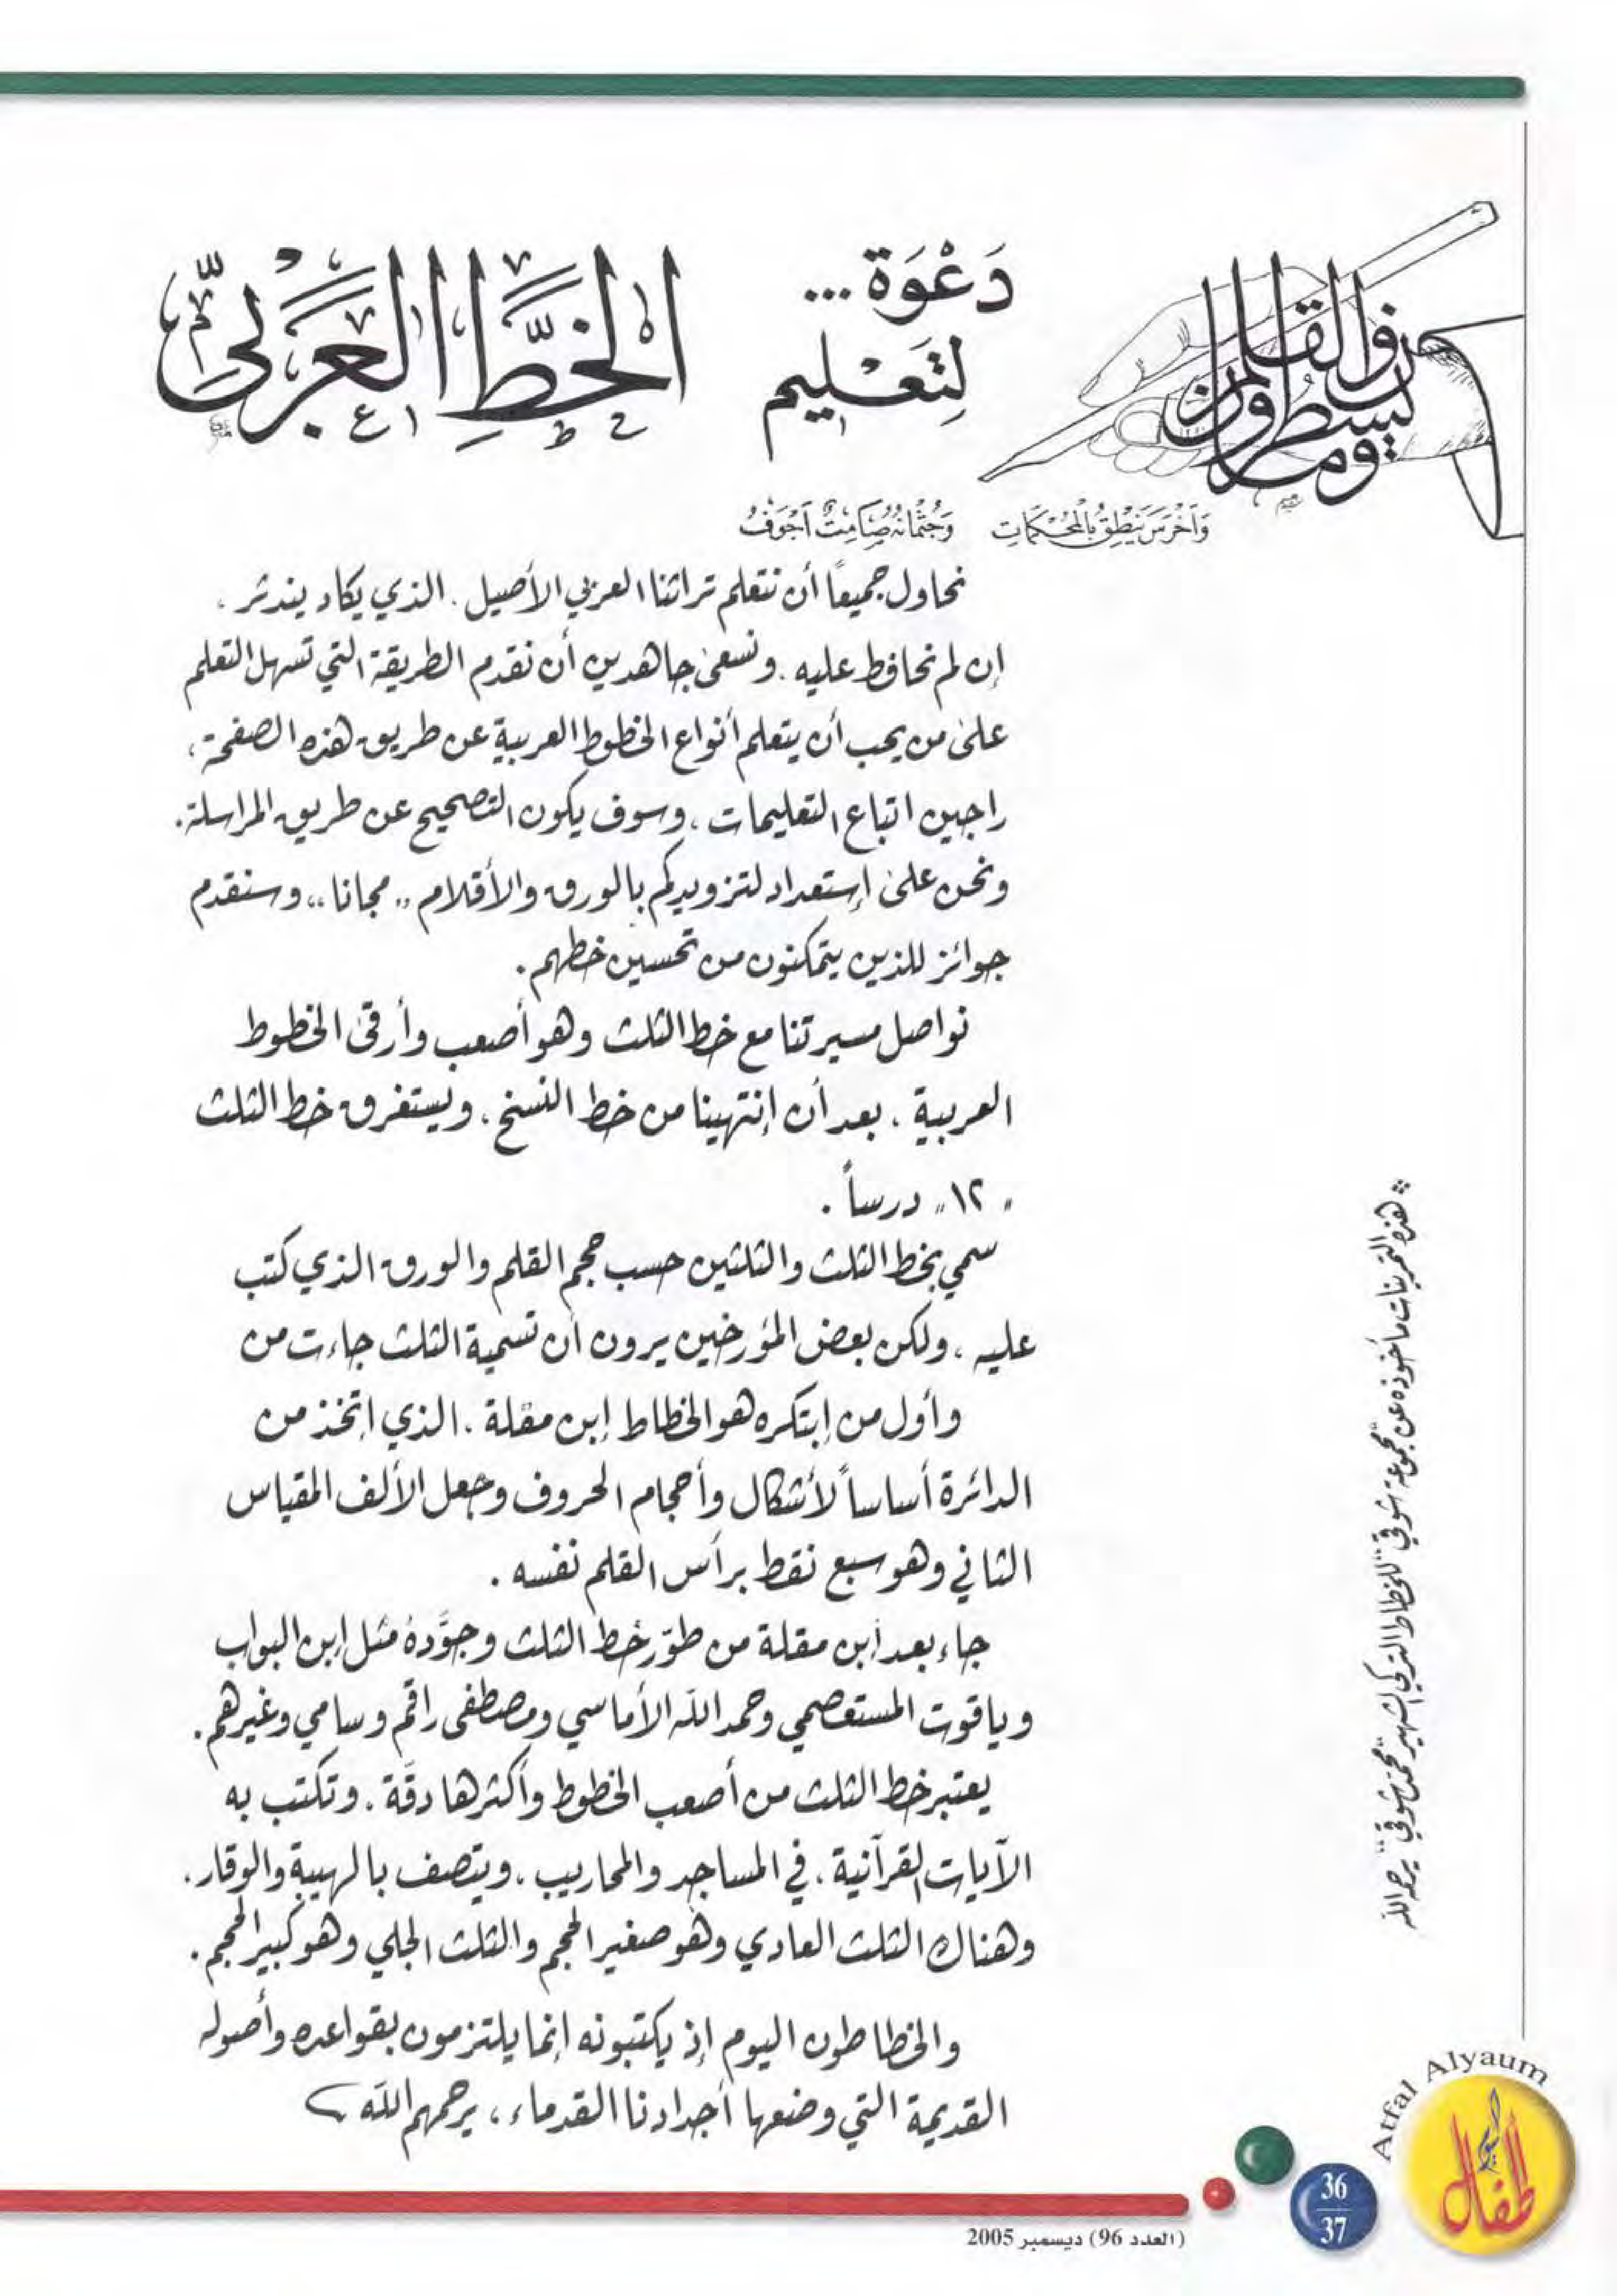 ن والقلم وما يسطرون
دَعْوَة...
لِتَعْليم
الخَطِّ العَرَبيِّ
وَأَخْرَسَ يَنْطِقُ بِالْمُحْكَمَاتِ وَجُثْمَانُهُ صَامِتٌ أَجْوَفُ
نحاول جميعًا أن نتعلم تراثنا العربي الأصيل. الذي يكاد يندثر،
إن لم نحافظ عليه. ونسعى جاهدين أن نقدم الطريقة التي تسهل التعلم
على من يحب أن يتعلم أنواع الخطوط العربية عن طريق هذه الصفحة،
راجين اتباع التعليمات، وسوف يكون التصحيح عن طريق المراسلة.
ونحن على إستعداد لتزويدكم بالورق والأقلام "مجانا"، وسنقدم
جوائز للذين يتمكنون من تحسين خطهم.
نواصل مسيرتنا مع خط الثلث وهو أصعب وأرقى الخطوط
العربية، بعد أن إنتهينا من خط النسخ، ويستغرق خط الثلث
"١٢" درساً.
سمي بخط الثلث والثلثين حسب حجم القلم والورق الذي كتب
عليه، ولكن بعض المؤرخين يرون أن تسمية الثلث جاءت من
وأول من إبتكره هو الخطاط إبن مقلة. الذي إتخذ من
الدائرة أساساً لأشكال وأحجام الحروف وجعل الألف المقياس
الثاني وهو سبع نقط برأس القلم نفسه.
جاء بعد أبن مقلة من طوّر خط الثلث وجوَّدهُ مثل إبن البواب
وياقوت المستعصمي وحمد الله الأماسي ومصطفى راقم وسامي وغيرهم.
يعتبر خط الثلث من أصعب الخطوط وأكثرها دقَة. وتكتب به
الآيات القرآنية، في المساجد والمحاريب، ويتصف بالهيبة والوقار.
وهناك الثلث العادي وهو صغير الحجم والثلث الجلي وهو كبير الحجم.
والخطاطون اليوم إذ يكتبونه إنما يلتزمون بقواعده وأصوله
القديمة التي وضعها أجدادنا القدماء، يرحمهم الله
* هذه التمرينات مأخوذه عن "مجموعة شوقي" للخطاط التركي الشهير "محمد شوقي" يرحمه الله
Atfal Alyaum
أطفال اليوم
36
37
(العدد 96) ديسمبر 2005